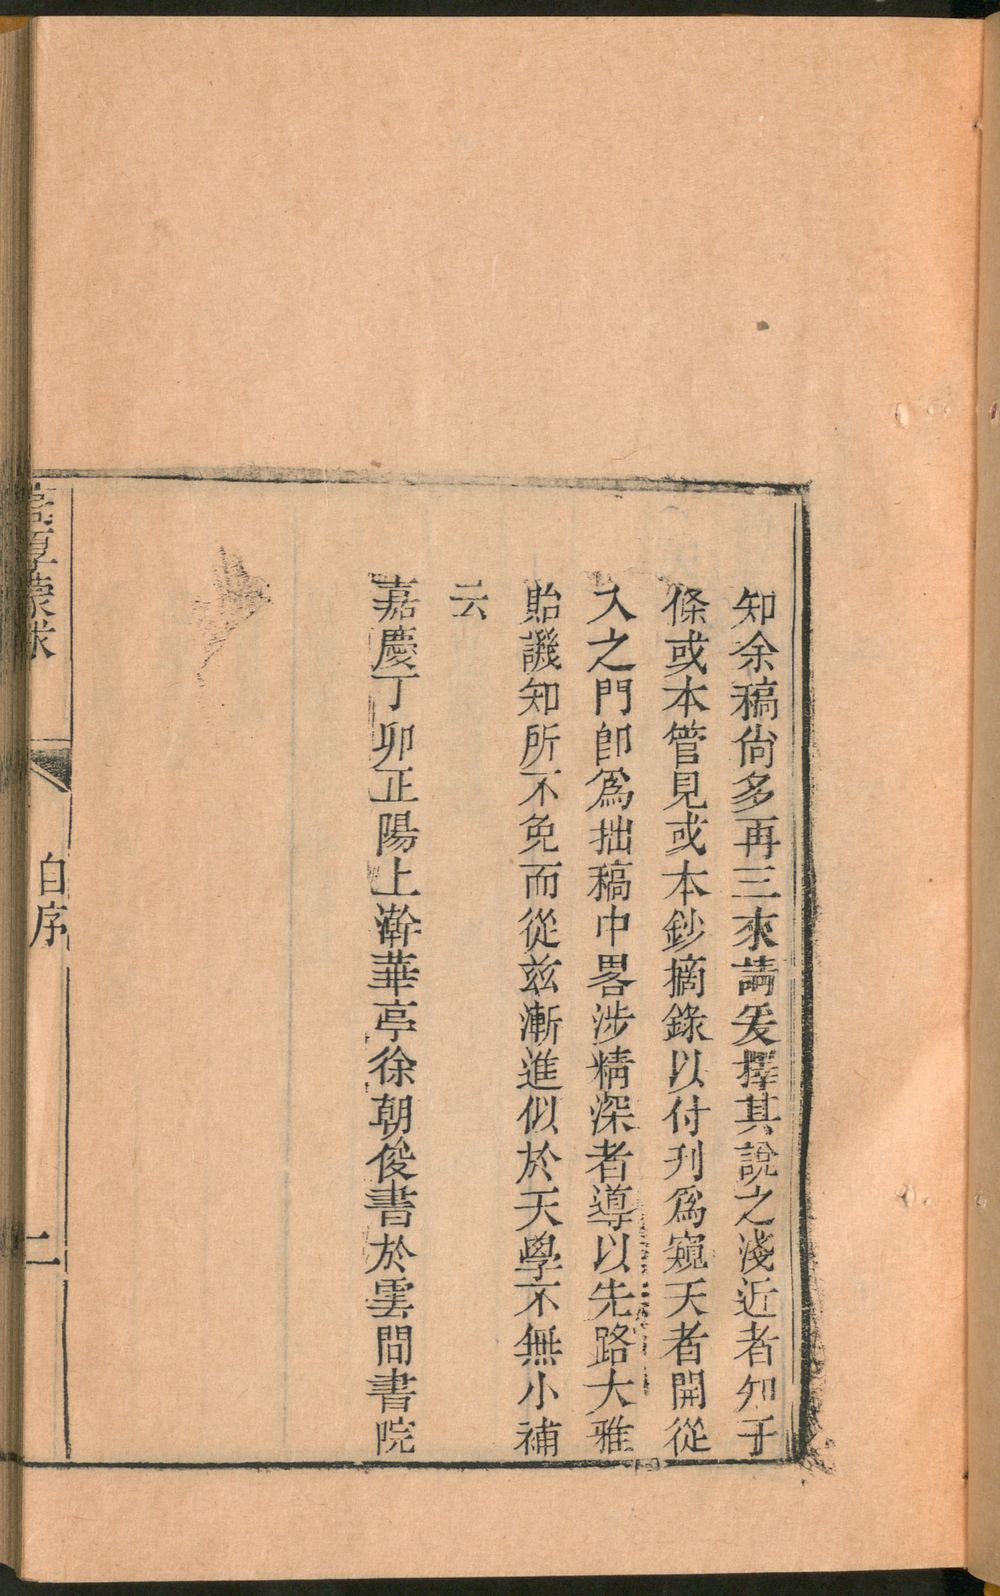 知余稿尙多再三來請爰擇其說之淺近者如干
條或本管見或本鈔摘錄以付刋爲窺天者開從
入之門卽爲拙稿中畧涉精深者導以先路大雅
貽譏知所不免而從兹漸進似於天學不無小補
云
嘉慶丁卯正陽上澣華亭徐朝俊書於雲間書院
高厚蒙求
自序
二